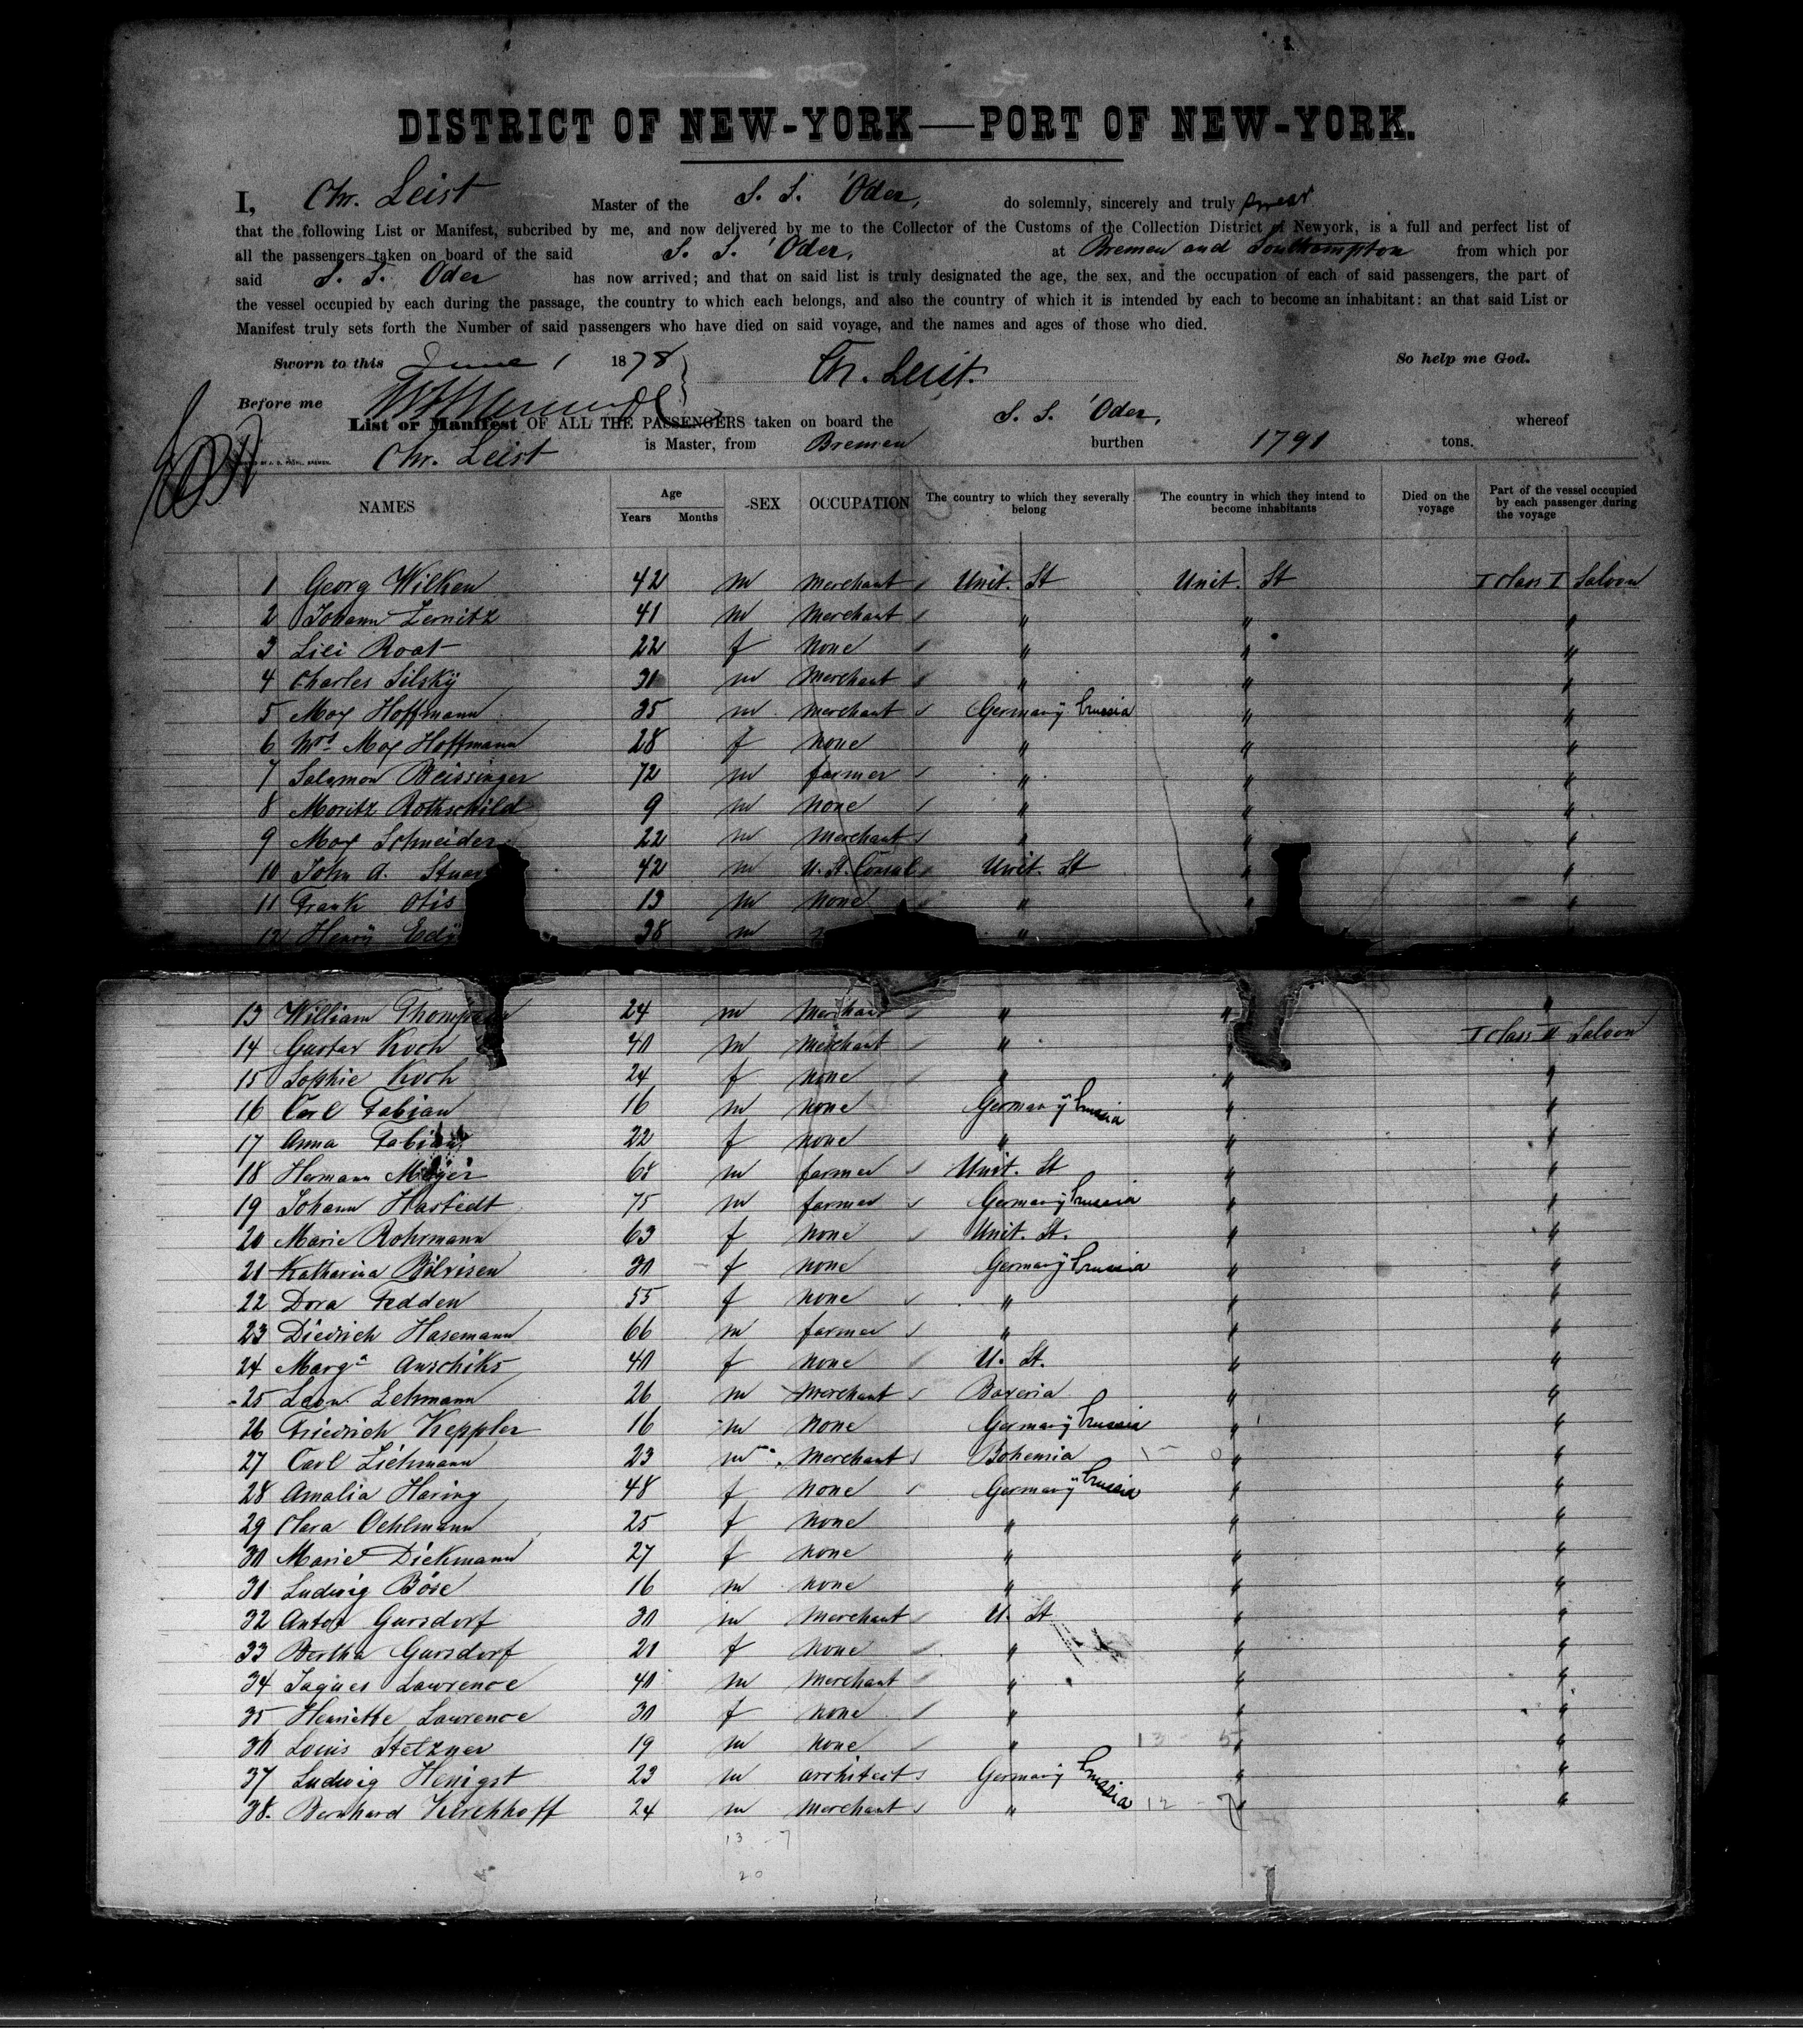 DISTRICT OF NEW-YORK—PORT OF NEW-YORK.
I, Chr. Leist Master of the S. S. Oder, do solemnly, sincerely and truly swear
that the following List or Manifest, subcribed by me, and now delivered by me to the Collector of the Customs of the Collection District of Newyork, is a full and perfect list of
all the passengers taken on board of the said S. S. Oder, at Bremen and Southampton from which por
said S. S. Oder has now arrived; and that on said list is truly designated the age, the sex, and the occupation of each of said passengers, the part of
the vessel occupied by each during the passage, the country to which each belongs, and also the country of which it is intended by each to become an inhabitant: an that said List or
Manifest truly sets forth the Number of said passengers who have died on said voyage, and the names and ages of those who died.
Sworn to this June 1 1878 Chr. Leist. So help me God.
Before me
List or Manifest OF ALL THE PASSENGERS taken on board the S. S. Oder, whereof
Chr. Leist is Master, from Bremen burthen 1791 tons.
NAMES Age Years Months SEX OCCUPATION The country to which they severally belong The country in which they intend to become inhabitants Died on the voyage Part of the vessel occupied by each passenger during the voyage
1 Georg Wilken 42 m Merchant Unit. St Unit. St I class I Saloon
2 Johann Lernitz 41 m Merchant " " "
3 Lili Roat 22 f None " " "
4 Charles Silsky 31 m Merchant " " "
5 Max Hoffmann 35 m Merchant Germany Prussia " "
6 Mrs Max Hoffmann 28 f none " " "
7 Salomon Bleissinger 72 m farmer " " "
8 Moritz Rothschild 9 m none " " "
9 Max Schneider 22 m merchant " " "
10 John A. 42 m U. St. Consul Unit. St " "
11 Frank Otis 13 m None " " "
12 Henry 38 m " "
13 William 24 m Merchant " " "
14 Gustav Koch 40 m Merchant " " I class II Saloon
15 Sophie Koch 24 f none " " "
16 Carl Fabian 16 m none Germany Prussia " "
17 Anna Fabian 22 f none " " "
18 Hermann Meyer m farmer Unit. St " "
19 Johann Hastedt 75 m farmer Germany Prussia " "
20 Marie Rohrmann 63 f none Unit. St. " "
21 Katharina 30 f none Germany Prussia " "
22 Dora Fedden 55 f none " " "
23 Diedrich Hasemann 66 m farmer " " "
24 Marga Anschiks 40 f none U. St. " "
25 Leon Lehmann 26 m Merchant Baveria " "
26 Friedrich Keppler 16 m none Germany Prussia " "
27 Carl Liehmann 23 m Merchant Bohemia " "
28 Amalia Haring 48 f none Germany Prussia " "
29 Clara Oehlmann 25 f none " " "
30 Marie Diekmann 27 f none " " "
31 Ludwig Böse 16 m none " " "
32 Anton Garsdorf 30 m Merchant U. St " "
33 Bertha Garsdorf 20 f none " " "
34 Jaques Lawrence 40 m Merchant " " "
35 Henriette Lawrence 30 f none " " "
36 Louis Stetzner 19 m none " 13 5 " "
37 Ludwig Henigst 23 m architect Germany Prussia " "
38. Bernhard Kirchhoff 24 m Merchant " 12 - 7 " "
13 - 7
20